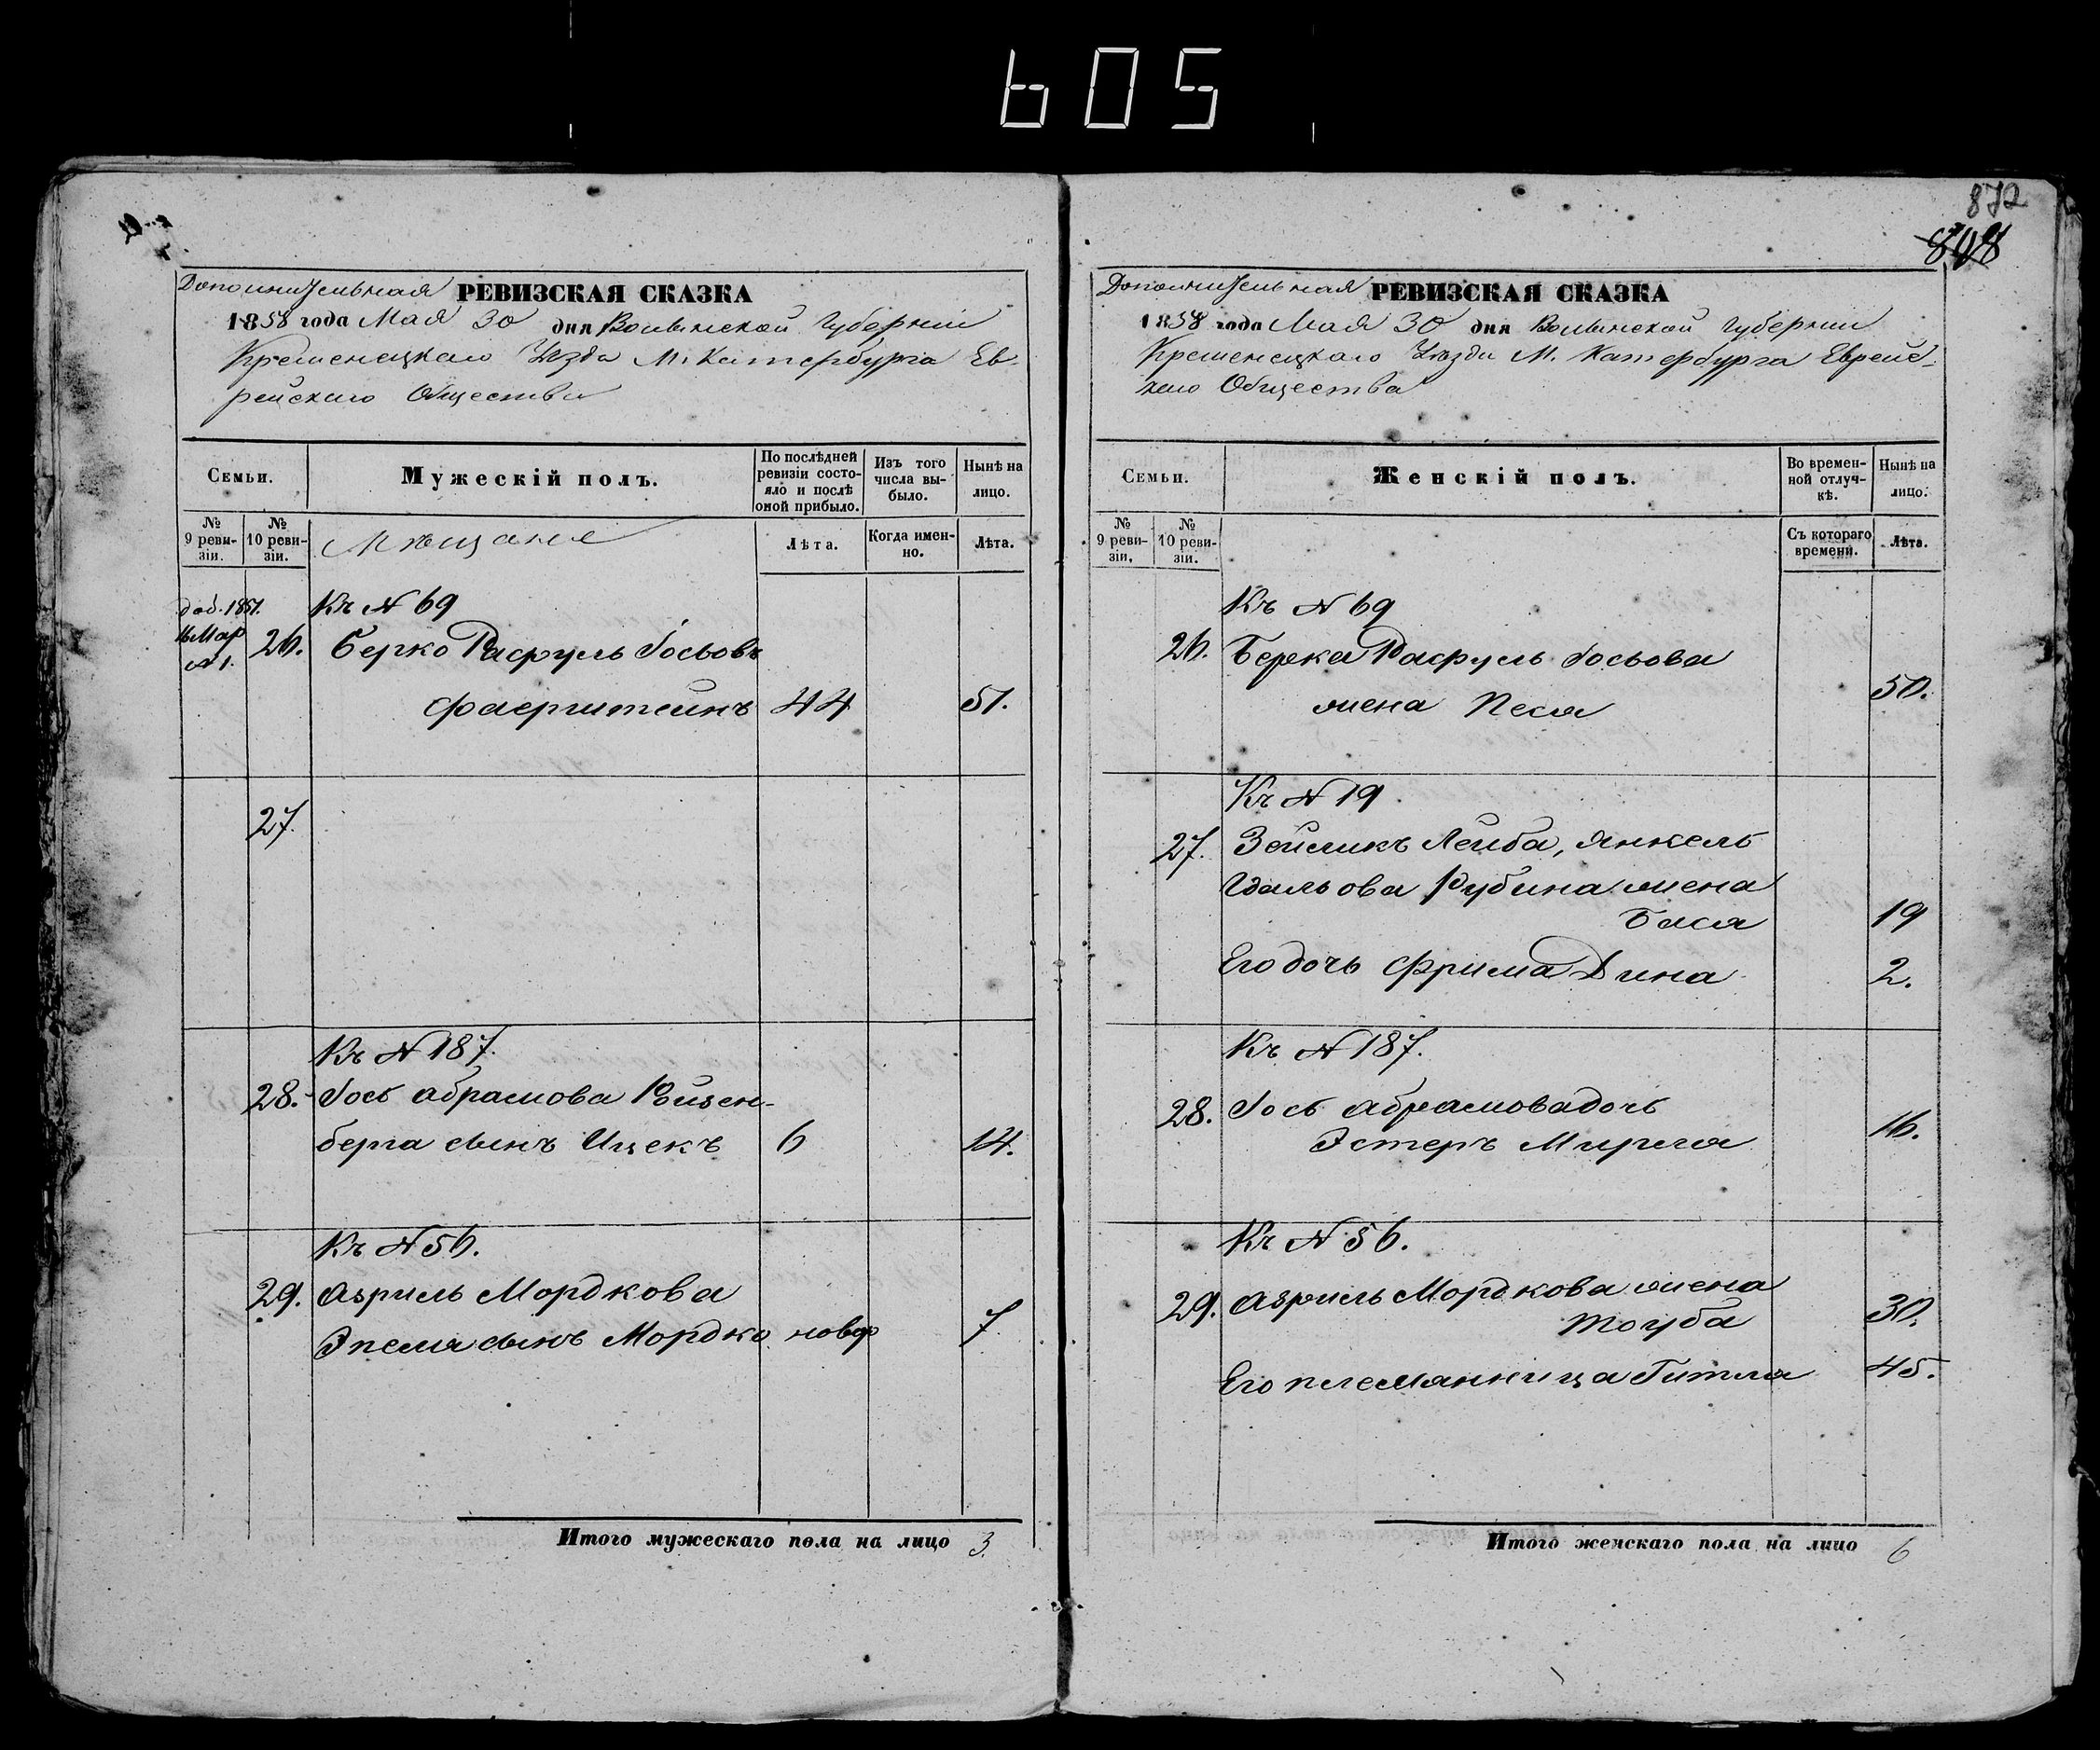 605
Дополнительная РЕВИЗСКАЯ СКАЗКА
1858 года Мая 30 дня Волынской Губернии
Кременецкаго Уезда М. Катербурга Ев-
рейскаго Общества
Семьи.
Мужескій полъ.
По послѣдней ревизіи состо-
яло и послѣ оной прибыло.
Изъ того числа вы-
было.
Нынѣ на лицо.
№ 9 реви-
зіи.
№ 10 реви-
зіи.
Мѣщане
Лѣта.
Когда имен-
но.
Лѣта.
доб. 1851.
16 Мар
№ 1.
Къ № 69
26. Берко Расруль Іосьовъ
Фаерштейнъ 44 51.
27.
Къ № 187.
28. Іось Абрамова Ройзен-
берга сынъ Ицекъ 6 14.
Къ № 56.
29. Азриль Мордкова
Эпеля сынъ Мордко новор 7.
Итого мужескаго пола на лицо 3.
872
808
Дополнительная РЕВИЗСКАЯ СКАЗКА
1858 года Мая 30 дня Волынской Губернии
Кременецкаго Уезда М. Катербурга Еврейс-
каго Общества
Семьи.
Женскій полъ.
Во времен-
ной отлуч-
кѣ.
Нынѣ на лицо.
№ 9 реви-
зіи.
№ 10 реви-
зіи.
Съ котораго времени.
Лѣта.
Къ № 69
26. Берка Расруль Іосьова
жена Песя 50.
Къ № 19
27. Зейликъ Лейба, Янкель
Удльова Рубина жена
Бася 19
Его дочь Фрима Дина 2.
Къ № 187.
28. Іось Абрамова дочь
Эстеръ Мирля 16.
Къ № 56.
29. Азриль Мордкова жена
Тоуба 30.
Его племянница Гитля 45.
Итого женскаго пола на лицо 6